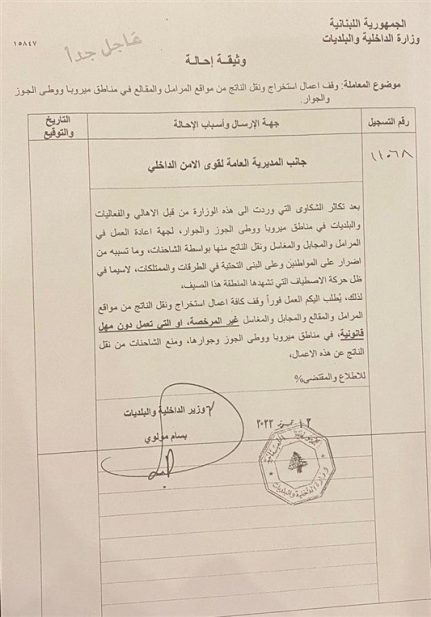 الجمهورية اللبنانية
وزارة الداخلية والبلديات
١٥٨٤٧
عاجل جداً
وثيقة إحالة
موضوع المعاملة: وقف اعمال استخراج ونقل الناتج من مواقع المرامل والمقالع في مناطق ميروبا ووطى الجوز
والجوار.
رقم التسجيل
جهة الإرسال وأسباب الإحالة
التاريخ
والتوقيع
١١٠٦٨
جانب المديرية العامة لقوى الامن الداخلي
بعد تكاثر الشكاوى التي وردت الى هذه الوزارة من قبل الاهالي والفعاليات
والبلديات في مناطق ميروبا ووطى الجوز والجوار، لجهة اعادة العمل في
المرامل والمجابل والمغاسل ونقل الناتج منها بواسطة الشاحنات، وما تسببه من
اضرار على المواطنين وعلى البنى التحتية في الطرقات والممتلكات، لاسيما في
ظل حركة الاصطياف التي تشهدها المنطقة هذا الصيف،
لذلك، يُطلب اليكم العمل فوراً وقف كافة اعمال استخراج ونقل الناتج من مواقع
المرامل والمقالع والمجابل والمغاسل غير المرخصة، او التي تعمل دون مهل
قانونية، في مناطق ميروبا ووطى الجوز وجوارها، ومنع الشاحنات من نقل
الناتج عن هذه الاعمال،
للاطلاع والمقتضى%
وزير الداخلية والبلديات
بسام مولوي
٢٠٢٢
وزارة الداخلية والبلديات